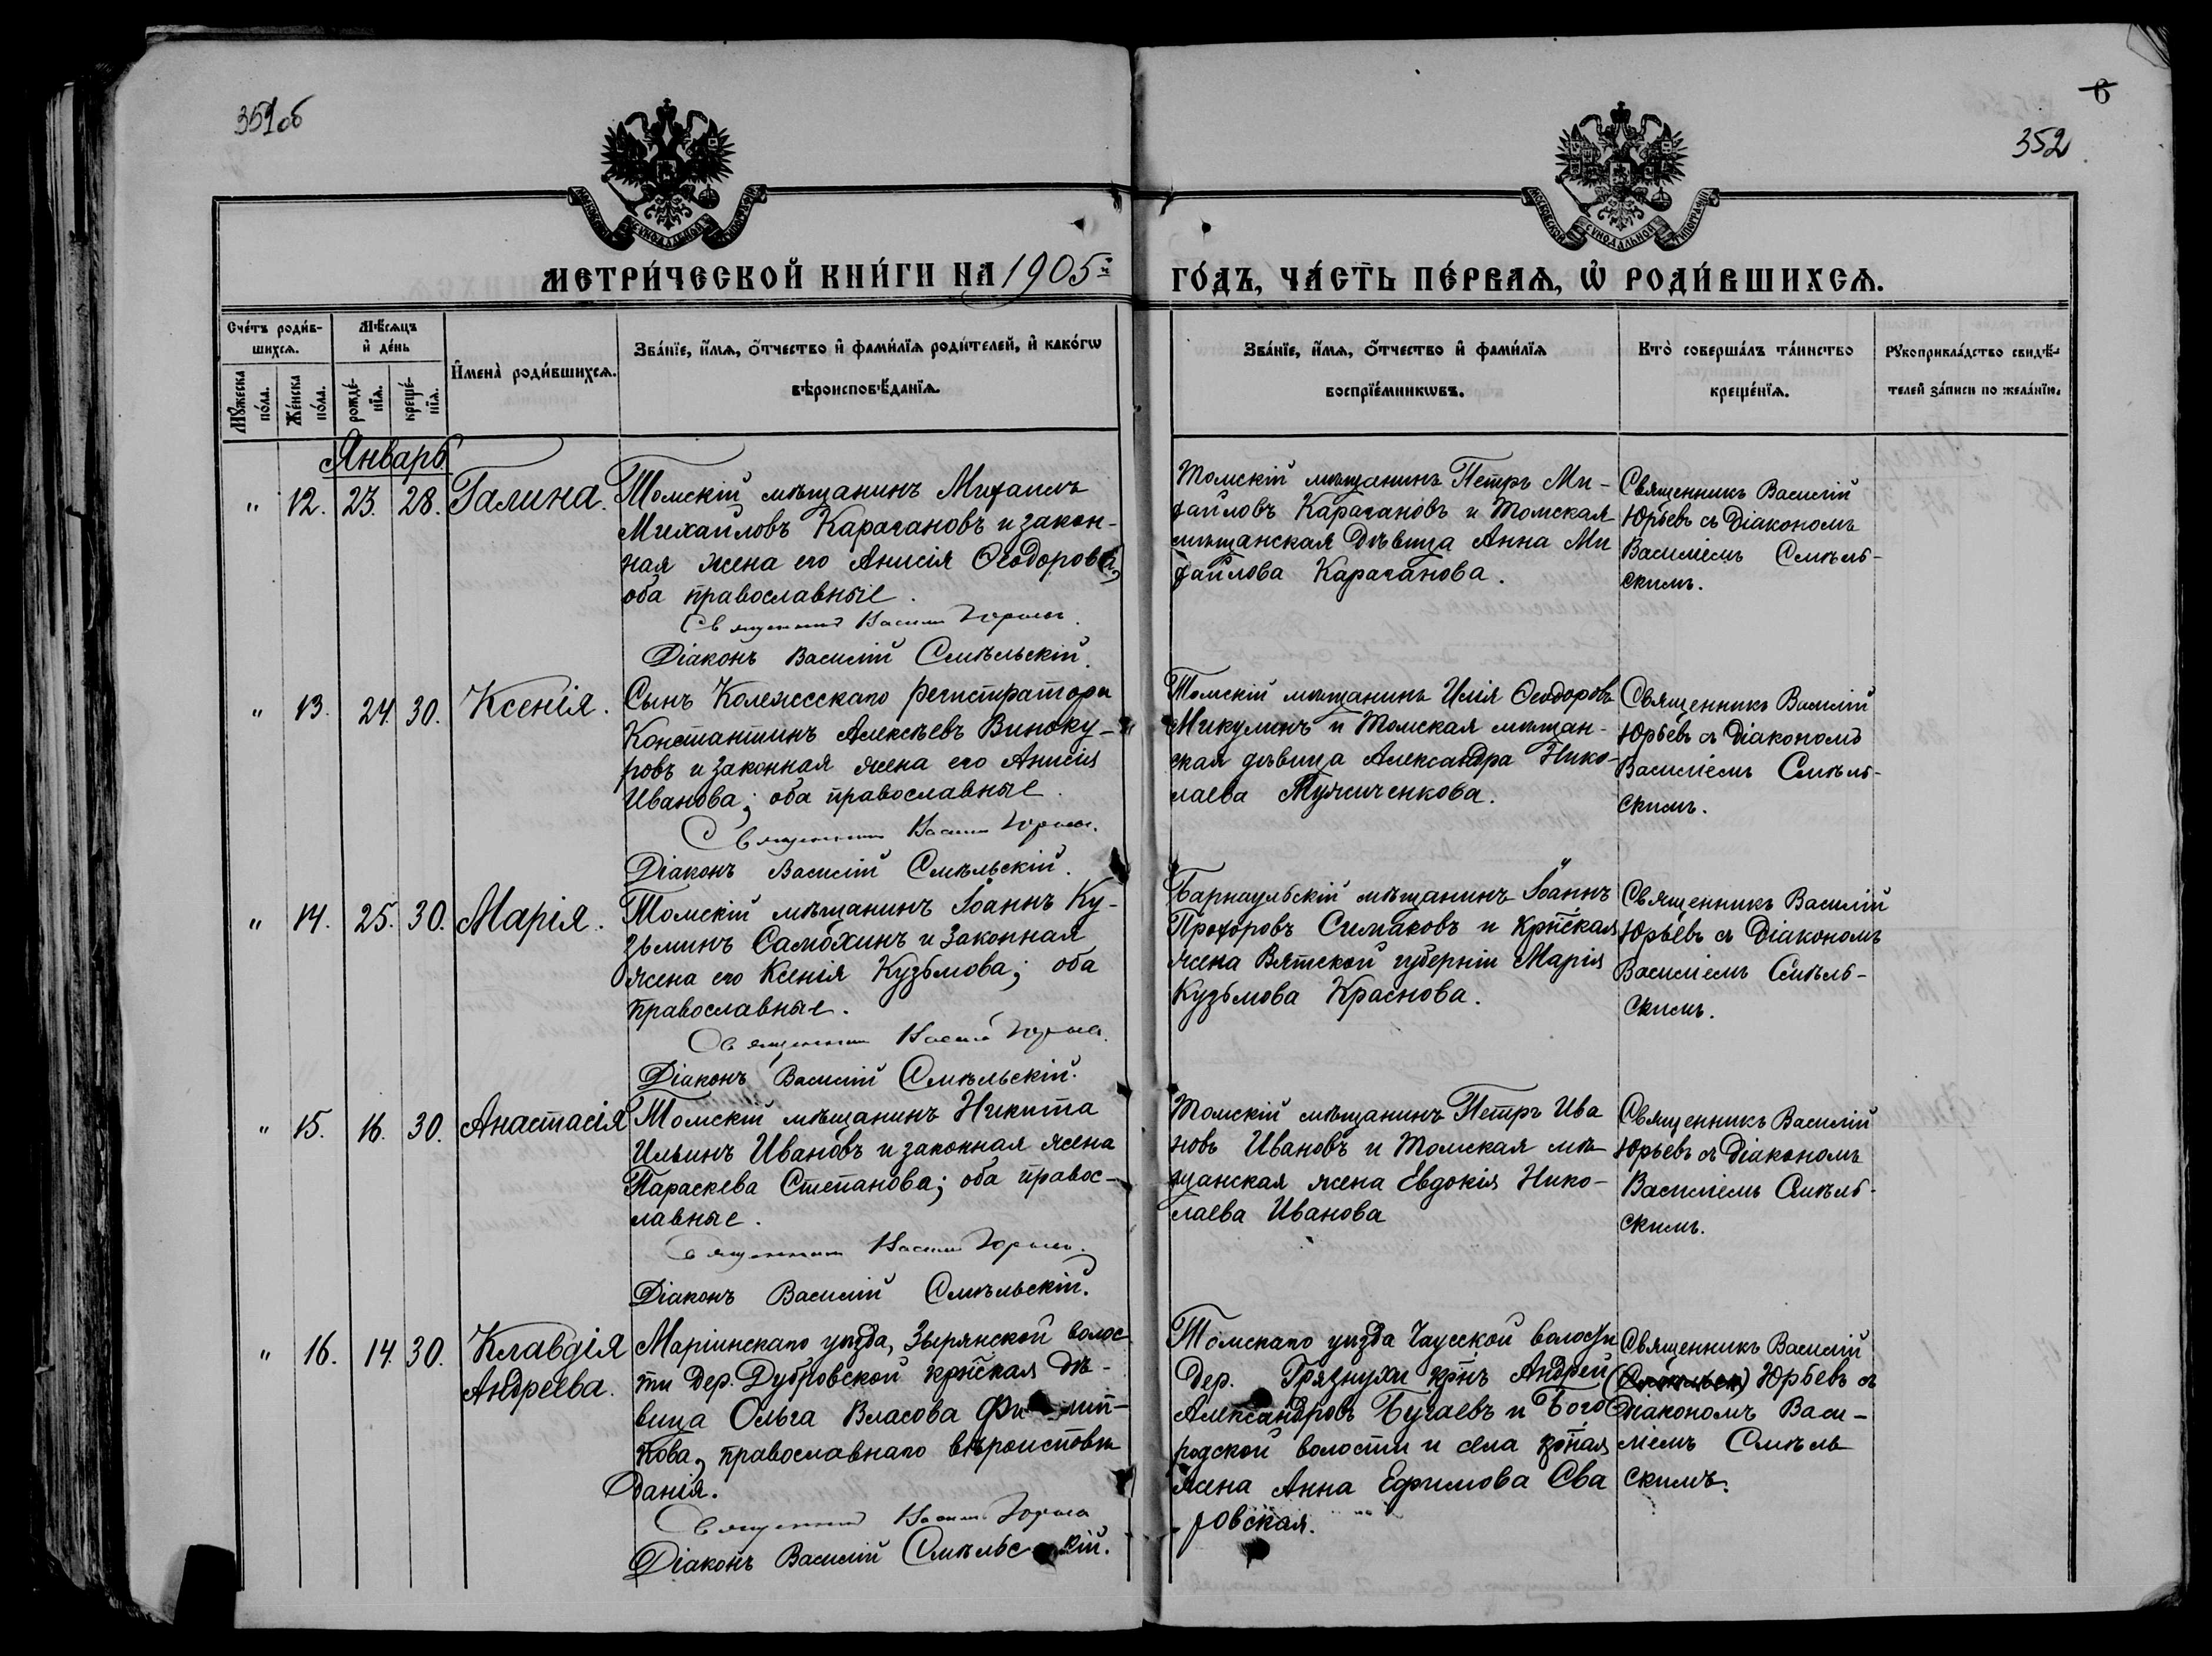 351об
6
352
МЕТРИ́ЧЕСКОЙ КНИ́ГИ НА 1905й ГО́ДЪ, ЧА́СТЬ ПЕ́РВАѦ, Ѡ҆ РОДИ́ВШИХСѦ.
Сче́тъ роди́в-
шихсѧ.
Мꙋ́жеска по́ла.
Же́нска по́ла.
Мѣ́сѧцъ и҆ де́нь
рожде́-
нїѧ.
креще́-
нїѧ.
И҆мена̀ роди́вшихсѧ.
Зва́нїе, и҆́мѧ, ѻ҆́тчество и҆ фами́лїѧ роди́телей, и҆ како́гѡ
вѣроисповѣ́данїѧ.
Зва́нїе, и҆́мѧ, ѻ҆́тчество и҆ фами́лїѧ
воспрїе́мникѡвъ.
Кто̀ соверша́лъ та́инство
креще́нїѧ.
Рꙋкоприкла́дство свидѣ́-
телей за́писи по жела́нїю.
Январь
" 12. 23. 28. Галина.
Томскій мѣщанинъ Михаилъ
Михаиловъ Карачановъ и закон-
ная жена его Анисія Ѳеодорова
оба православные.
Священникъ Василій Юрьевъ.
Діаконъ Василій Смѣльскій.
Томскій мѣщанинъ Петръ Ми-
хайловъ Карачановъ и Томская
мѣщанская дѣвица Анна Ми
хайлова Карачанова.
Священникъ Василій
Юрьевъ съ Діакономъ
Василіемъ Смѣль-
скимъ.
" 13. 24. 30. Ксенія.
Сынъ Коллежскаго регистратора
Константинъ Алексѣевъ Виноку-
ровъ и законная жена его Анисія
Иванова; оба православные.
Священникъ Василій Юрьевъ.
Діаконъ Василій Смѣльскій.
Томскій мѣщанинъ Илія Ѳеодоровъ
Микулинъ и Томская мѣщан-
ская дѣвица Александра Нико-
лаева
Священникъ Василій
Юрьевъ съ Діакономъ
Василіемъ Смѣль-
скимъ.
" 14. 25. 30. Марія.
Томскій мѣщанинъ Іоаннъ Ку-
зьминъ Самохинъ и законная
жена его Ксенія Кузьмова; оба
православные.
Священникъ Василій Юрьевъ.
Діаконъ Василій Смѣльскій.
Барнаульскій мѣщанинъ Іоаннъ
Прохоровъ Симаковъ и крн̃ская
жена Вятской губерніи Марія
Кузьмова Краснова.
Священникъ Василій
Юрьевъ съ Діакономъ
Василіемъ Смѣль-
скимъ.
" 15. 16. 30. Анастасія
Томскій мѣщанинъ Никита
Ильинъ Ивановъ и законная жена
Параскева Степанова; оба правос-
лавные.
Священникъ Василій Юрьевъ.
Діаконъ Василій Смѣльскій.
Томскій мѣщанинъ Петръ Ива
новъ Ивановъ и Томская мѣ-
щанская жена Евдокія Нико-
лаева Иванова
Священникъ Василій
Юрьевъ съ Діакономъ
Василіемъ Смѣль-
скимъ.
" 16. 14. 30. Клавдія
Андреева.
Маріинскаго уѣзда, Зырянской волос
ти дер. Дубровской крн̃ская дѣ-
вица Ольга Власова
кова, православнаго вѣроисповѣ
данія.
Священникъ Василій Юрьевъ
Діаконъ Василій Смѣльскій.
Томскаго уѣзда Чаусской волости
дер. Грязнухи крн̃ъ Андрей
Александровъ Бугаевъ и Бого
родской волости и села крн̃ая
жена Анна Ефимова Сва
ровская.
Священникъ Василій
Юрьевъ съ
Діакономъ Васи-
ліемъ Смѣль
скимъ.